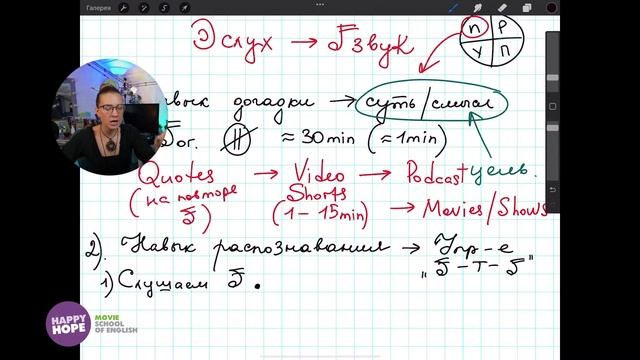 Галерея
Слух → звук
П Р
У П
догадки → суть/смысл
ог. ≈ 30min (≈ 1min)
Quotes → Video → Podcast цель.
(на повторе Shorts
(1 – 15min) → Movies/Shows
2). Навык распознавания → Упр-е
1) Слушаем
HAPPY MOVIE
HOPE SCHOOL
OF ENGLISH